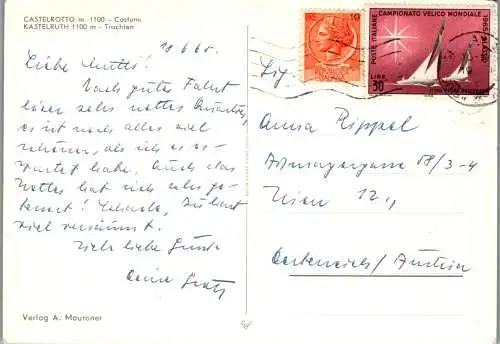 CASTELROTTO m. 1100 - Costumi
KASTELRUTH 1100 m - Trachten
18.6.65.
Liebe Mutti!
Nach guter Fahrt
sehr nettes Quartier,
es ist noch alles viel
schöner, als ich es er-
wartet habe. Auch das
Wetter hat sich sehr ge-
bessert! Schade, Du hast
viel versäumt.
Viele liebe Grüße
Deine
Verlag A. Mauroner
10
REPUBBLICA
ITALIANA
POSTE ITALIANE CAMPIONATO VELICO MONDIALE
1965
LIRE
30
Anna Rippel
18/3-4
Wien 12.,
Oesterreich / Austria